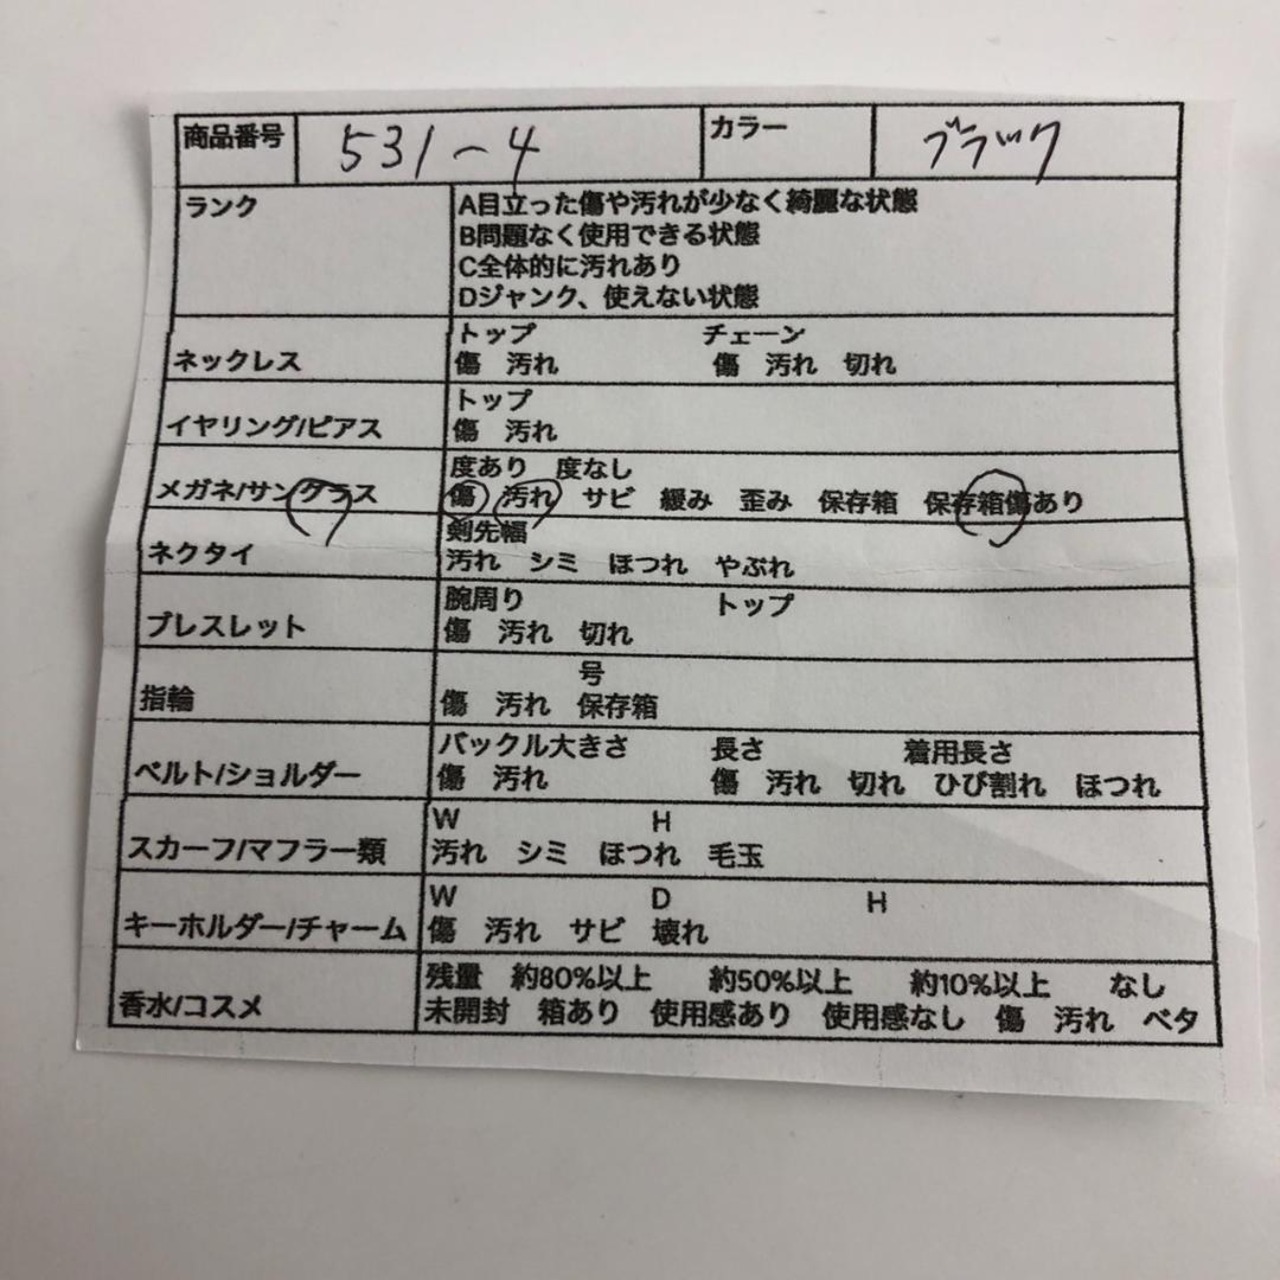 商品番号 531-4 カラー ブラック
ランク
A目立った傷や汚れが少なく綺麗な状態
B問題なく使用できる状態
C全体的に汚れあり
Dジャンク、使えない状態
トップ チェーン
ネックレス 傷 汚れ 傷 汚れ 切れ
トップ
イヤリング/ピアス 傷 汚れ
度あり 度なし
メガネ/サングラス 傷 汚れ サビ 緩み 歪み 保存箱 保存箱傷あり
剣先幅
ネクタイ 汚れ シミ ほつれ やぶれ
腕周り トップ
ブレスレット 傷 汚れ 切れ
号
指輪 傷 汚れ 保存箱
バックル大きさ 長さ 着用長さ
ベルト/ショルダー 傷 汚れ 傷 汚れ 切れ ひび割れ ほつれ
W H
スカーフ/マフラー類 汚れ シミ ほつれ 毛玉
W D H
キーホルダー/チャーム 傷 汚れ サビ 壊れ
残量 約80%以上 約50%以上 約10%以上 なし
香水/コスメ 未開封 箱あり 使用感あり 使用感なし 傷 汚れ ベタ